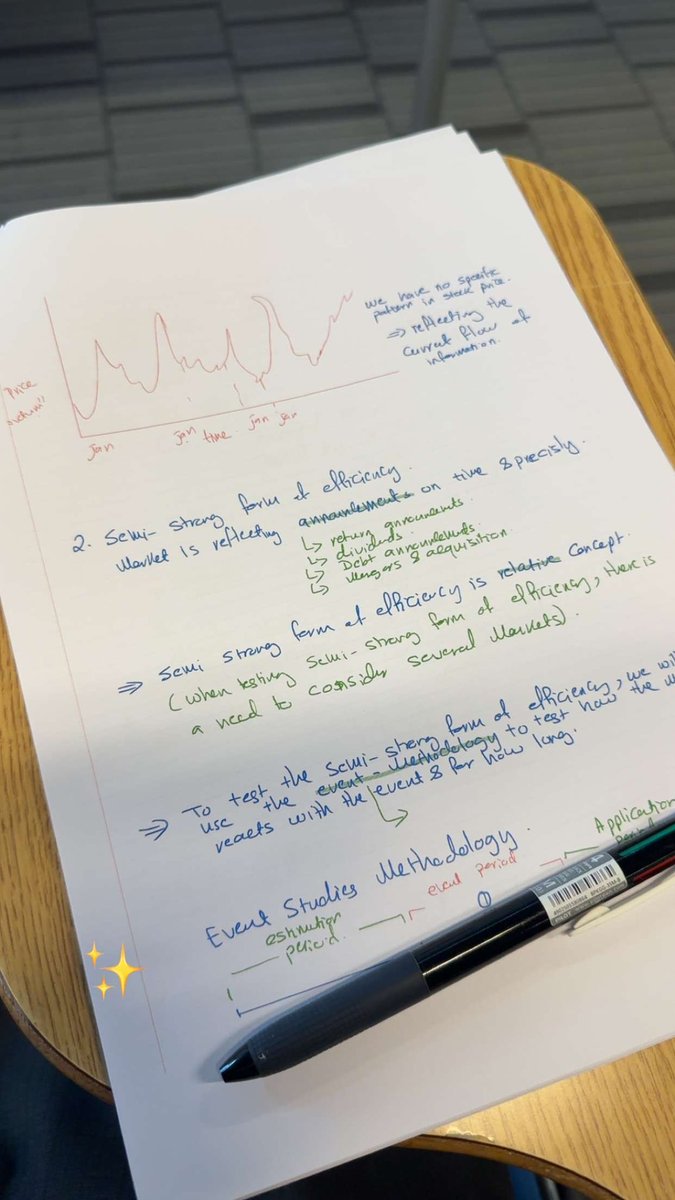 we have no specific
pattern in stock price.
⇒ reflecting the
current flow of
information.
Price
jan
jan
time
jan
jan
2. Semi-strong form of efficiency.
Market is reflecting announcements on time & precisly.
↳ return announments
↳ dividends.
↳ Debt announments.
↳ Mergers & aquisition.
⇒ Semi strong form of efficiency is relative concept.
(when testing semi-strong form of efficiency, there is
a need to consider several markets).
⇒ To test the semi-strong form of efficiency, we
use the event-methodology to test how the
reacts with the event & for how long.
Event Studies Methodology.
estimation
period.
event period
Application
0